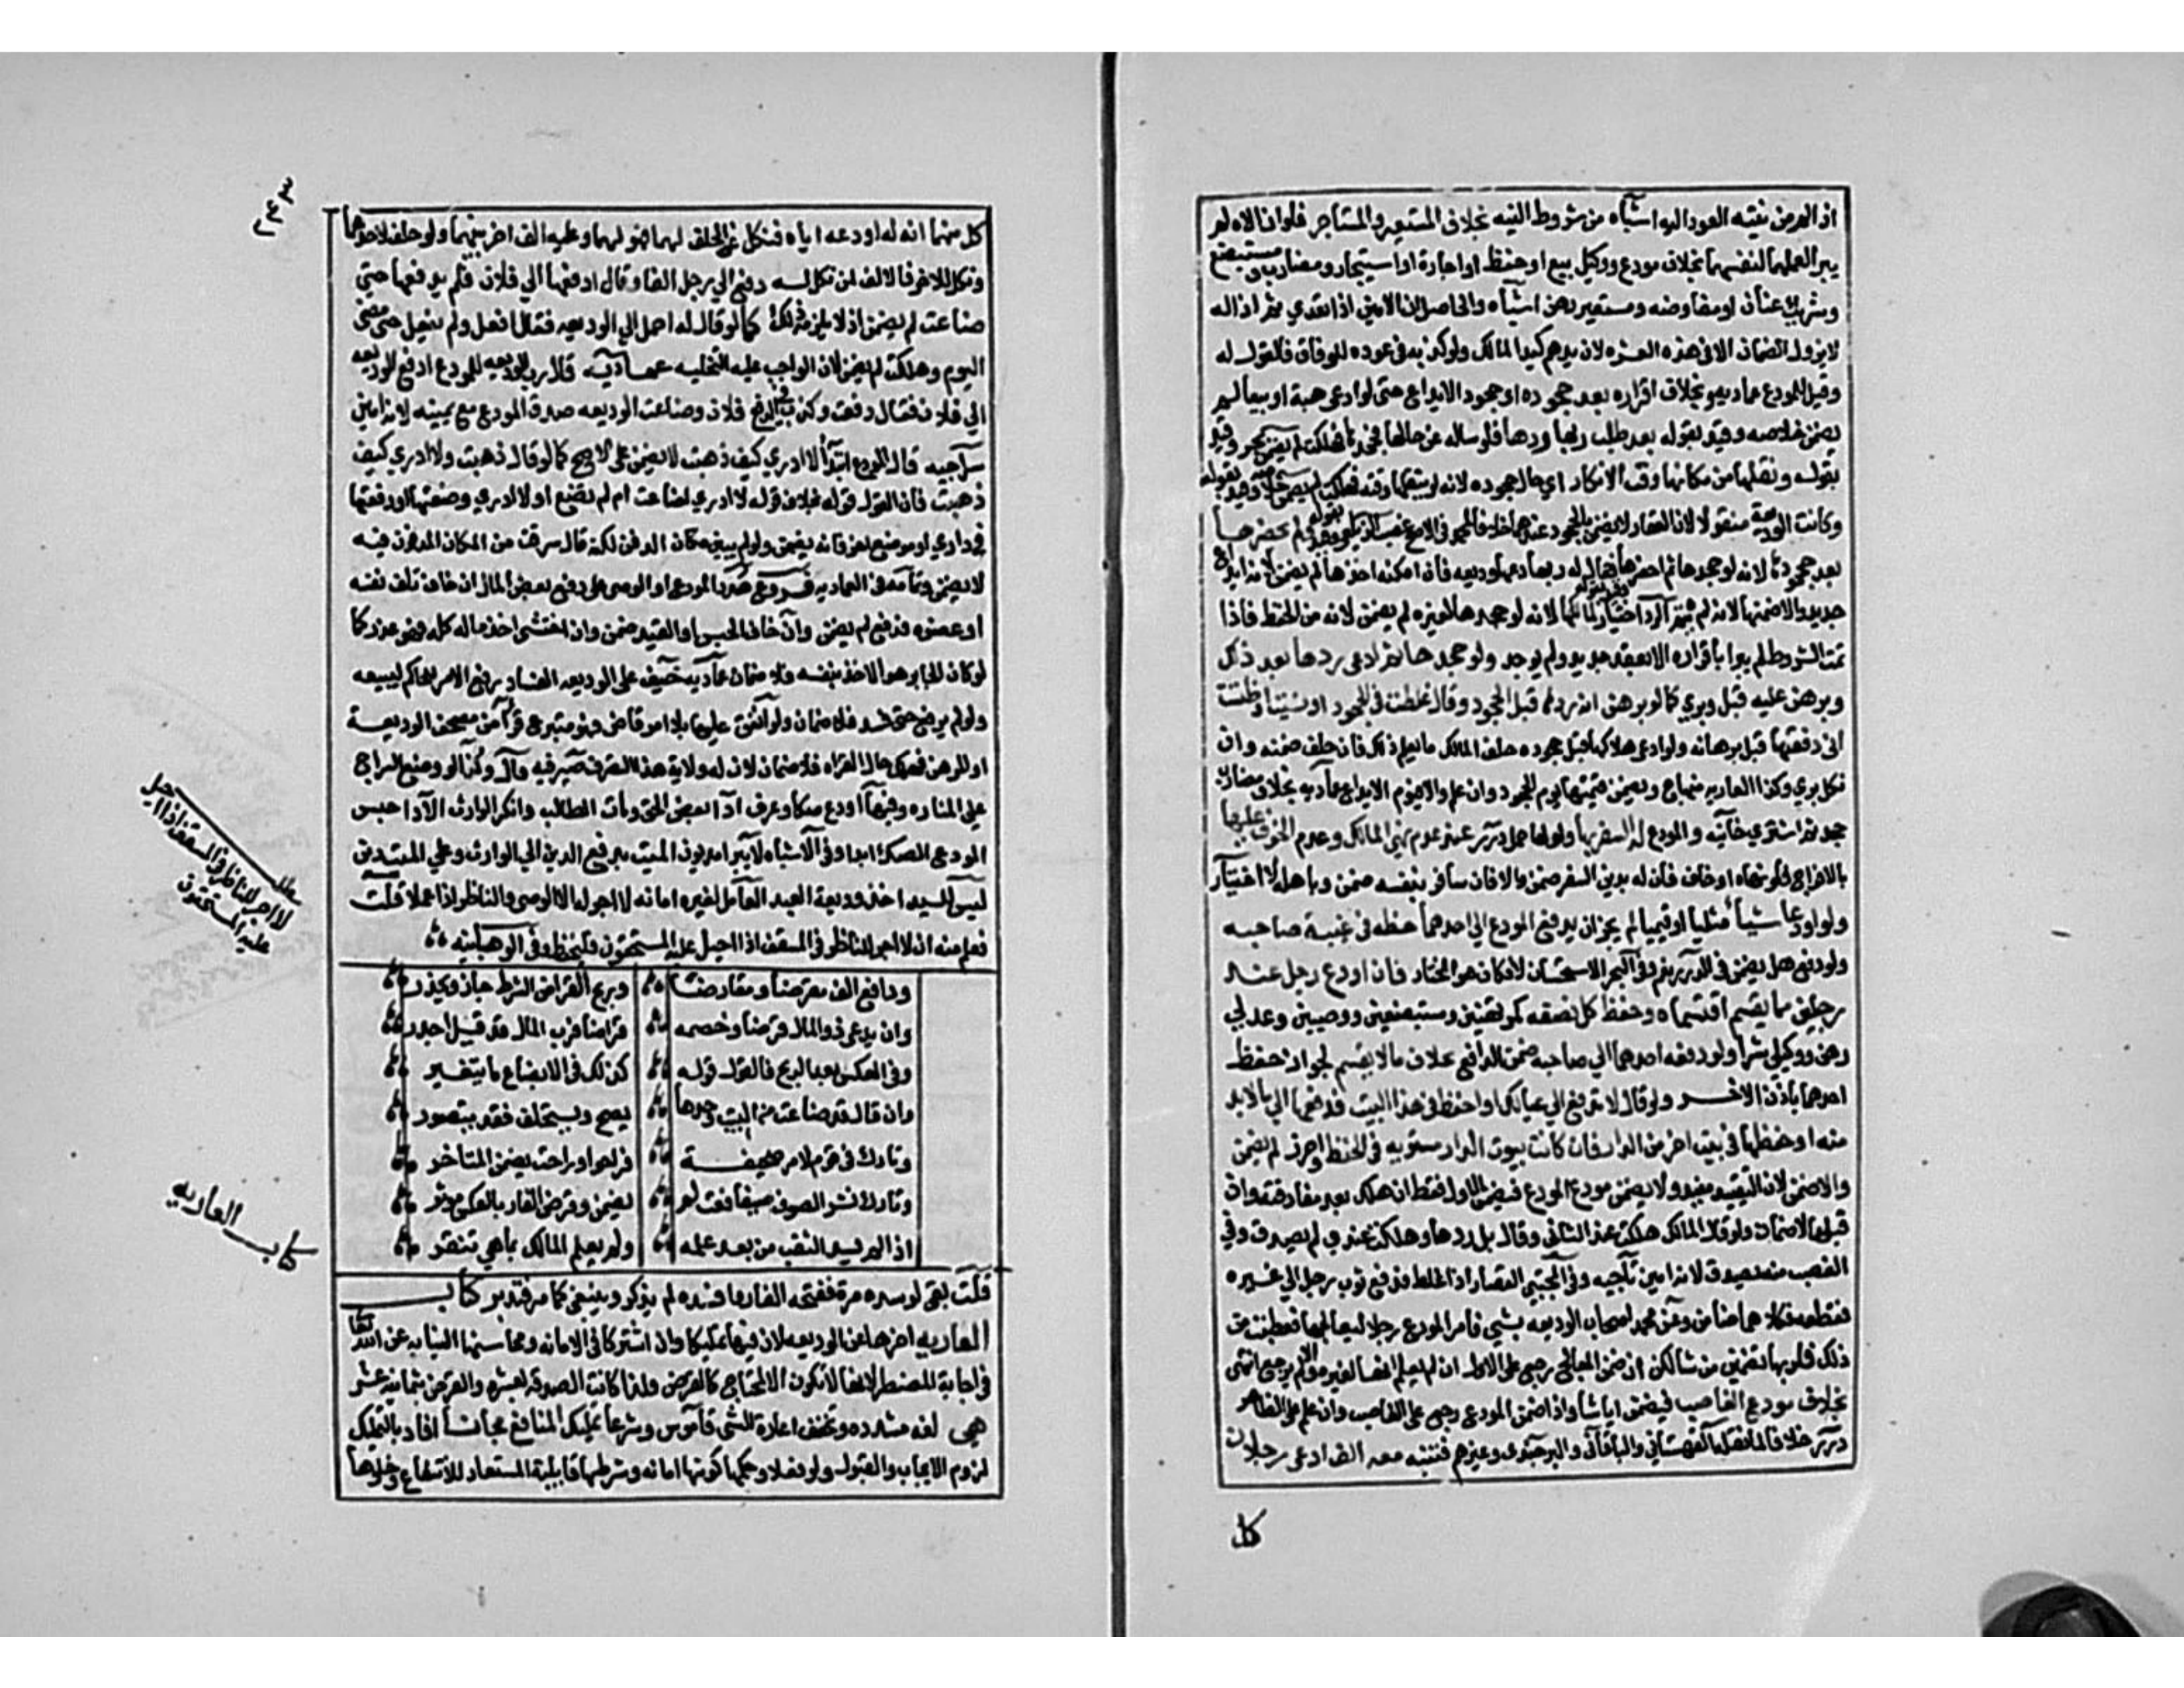 اذا لم يكن من نيته العود اليه اشباه من شروط النيه بخلاف المستعير والمستاجر فلو ازالاه لم
يبرا لعملهما لنفسهما بخلاف مودع ووكيل بيع او حفظ او اجارة او استيجار ومضارب ومستبضع
وشريك عنان او مفاوضه ومستعير رهن اشباه والحاصل ان الامين اذا تعدي ثم ازاله
لا يزول الضمان الا في هذه العشره لان يدهم كيد المالك ولو كذبه في عوده للوفاق فالقول له
وقيل للمودع عماديه وبخلاف اقراره بعد جحوده او جحود الايداع حتى لو ادعى هبة او بيعا لم
يضمن خلاصه وقيد بقوله بعد طلب ربها ردها فلو ساله عن حالها فجحدها فهلكت لم يضمن بحر وقيد
بقوله ونقلها من مكانها وقت الانكار اي حال جحوده لانه لو لم ينقلها وقته فهلكت لم يضمن خلاصه وقيد بقوله
وكانت الوديعة منقولا لان العقار لا يضمن بالجحود عندهما خلافا لمحمد في الاصح غصب الزيلعي وقيد بقوله ولم يحضرها
بعد جحودها لانه لو جحدها ثم احضرها فقال له ربها دعها وديعه فان امكنه اخذها لم يضمن لانه ايداع
جديد والا ضمنها لانه لم يتم الرد اختيار وقيد بقوله لمالكها لانه لو جحدها لغيره لم يضمن لانه من الحفظ فاذا
تمت الشروط لم يبرا باقراره الا بعقد جديد ولم يوجد ولو جحدها ثم ادعى ردها بعد ذلك
وبرهن عليه قبل وبري كما لو برهن انه ردها قبل الجحود وقال غلطت في الجحود او نسيت او ظننت
اني دفعتها قبل برهانه ولو ادعى هلاكها قبل جحوده حلف المالك ما يعلم ذلك فان حلف ضمنه وان
نكل بري وكذا العاريه منهاج ويضمن قيمتها يوم الجحود وان علم والا فيوم الايداع عماديه بخلاف مضارب
جحد ثم اشتري خانيه والمودع له السفر بها ولو لها حمل درر عند عدم نهي المالك وعدم الخوف عليها
بالاخراج فلو نهاه او خاف فان له بد من السفر ضمن والا فان سافر بنفسه ضمن وباهله لا اختيار
ولو اودعا شيأ مثليا او قيميا لم يجز ان يدفع المودع الي احدهما حظه في غيبة صاحبه
ولو دفع هل يضمن في الدرر نعم وفي البحر الاستحسان لا فكان هو المختار فان اودع رجل عند
رجلين ما يقسم اقتسماه وحفظ كل نصفه كمرتهنين ومستبضعين ووصيين وعدلي
رهن ووكيلي شرا ولو دفعه احدهما الي صاحبه ضمن الدافع بخلاف ما لا يقسم لجواز حفظ
احدهما باذن الاخر ولو قال لا تدفع الي عيالك او احفظ في هذا البيت فدفعها الي ما لا بد
منه او حفظها في بيت اخر من الدار فان كانت بيوت الدار مستويه في الحفظ او احرز لم يضمن
والا ضمن لان التقييد مفيد ولا يضمن مودع المودع فيضمن الاول فقط ان هلك بعد مفارقته وان
قبلها لا ضمان ولو قال المالك هلكت عند الثاني وقال بل ردها وهلكت عندي لم يصدق وفي
الغصب منه يصدق لانه امين سراجيه وفي المجتبي القصار اذا غلط فدفع ثوب رجل الي غيره
فقطعه فكلاهما ضامن وعن محمد اصاب الوديعه شي فامر المودع رجلا ليعالجها فعطبت من
ذلك فلربها تضمين من شا لكن ان ضمن المعالج رجع على الاول ان لم يعلم انها لغيره والا لم يرجع انتهى
بخلاف مودع الغاصب فيضمن ايا شا واذا ضمن المودع رجع على الغاصب وان علم على الظاهر
درر خلافا لما نقله القهستاني والباقاني والبرجندي وغيرهم فتنبه معه الف ادعى رجلان
كل
٢٤٣
كل منهما انه له اودعه اياه فنكل عن الحلف لهما فهو لهما وعليه الف اخر بينهما ولو حلف لاحدهما
ونكل للاخر فالالف لمن نكل له دفع الي رجل الفا وقال ادفعها الي فلان فلم يدفعها حتى
ضاعت لم يضمن اذ لا يلزمه ذلك كما لو قال له احمل الي الوديعه فقال افعل ولم يفعل حتى مضى
اليوم وهلكت لم يضمن لان الواجب عليه التخليه عماديه قال رب الوديعه للمودع ادفع الوديعه
الي فلان فقال دفعت وكذبه في الدفع فلان وضاعت الوديعه صدق المودع مع يمينه لانه امين
سراجيه قال المودع ابتدأ لا ادري كيف ذهبت لا يضمن على الاصح كما لو قال ذهبت ولا ادري كيف
ذهبت فان القول قوله بخلاف قوله لا ادري اضاعت ام لم تضع او لا ادري وضعتها او دفنتها
في داري او موضع اخر فانه يضمن ولو لم يبين مكان الدفن لكنه قال سرقت من المكان المدفون فيه
لا يضمن وتمامه في العماديه فروع هدد المودع او الوصي على دفع بعض المال ان خاف تلف نفسه
او عضوه فدفع لم يضمن وان خاف الحبس او القيد ضمن وان خشي اخذ ماله كله فهو عذر كما
لو كان الجابر هو الاخذ بنفسه فلا ضمان عماديه خيف على الوديعه الفساد رفع الامر للحاكم ليبيعه
ولو لم يرفع حتى فسد فلا ضمان ولو انفق عليها بلا امر قاض فهو متبرع قرأ من مصحف الوديعة
او الرهن فهلك حال القراه فلا ضمان لان له ولاية هذا التصرف صيرفيه قال وكذا لو وضع السراج
على المناره وفيها اودع صكا وعرف اداء بعض الحق ومات الطالب وانكر الوارث الاداء حبس
المودع الصك ابدا وفي الاشباه لا يبرا مديون الميت بدفع الدين الي الوارث وعلي الميت دين
ليس للسيد اخذ وديعة العبد العامل لغيره امانه لا اجر له الا الوصي والناظر اذا عملا قلت
فعلم منه ان لا اجر للناظر في المسقف اذا احيل عليه المستحقون فليحفظ وفي الوهبانيه
ودافع الف مقرضا ومقارضا وربح القراض الشرط جاز ويحذر
وان يدعي ذو المال قرضا وخصمه قراضا فرب المال قد قيل اجدر
وفي العكس بعد الربح فالقول قوله كذلك في الابضاع ما يتغير
وان قال قد ضاعت من البيت وحدها يصح ويستحلف فقد يتصور
وتارك في قوم لامر صحيفة فراحوا وراحت يضمن المتأخر
وتارك نشر الصوف صيفا فعث لم يضمن وقرض الفار بالعكس يوثر
اذا لم يسد الثقب من بعد علمه ولم يعلم المالك ما هي تنقر
قلت بقي لو سده مرة ففتحه الفار وافسده لم يذكر وينبغي كما مر فتدبر كتاب
العاريه اخرها عن الوديعه لان فيها تمليكا وان اشتركا في الامانه ومحاسنها النيابه عن الله تعا
في اجابة المضطر لانها لا تكون الا لمحتاج كالقرض ولذا كانت الصدقه بعشره والقرض بثمانيه عشر
هي لغه مشدده وتخفف اعارة الشي قاموس وشرعا تمليك المنافع مجانا افاد بالتمليك
لزوم الايجاب والقبول ولو فعلا وحكمها كونها امانه وشرطها قابلية المستعار للانتفاع وخلوها
مطلب
لا اجر للناظر في المسقف اذا احيل
عليه المستحقون
كتاب العاريه